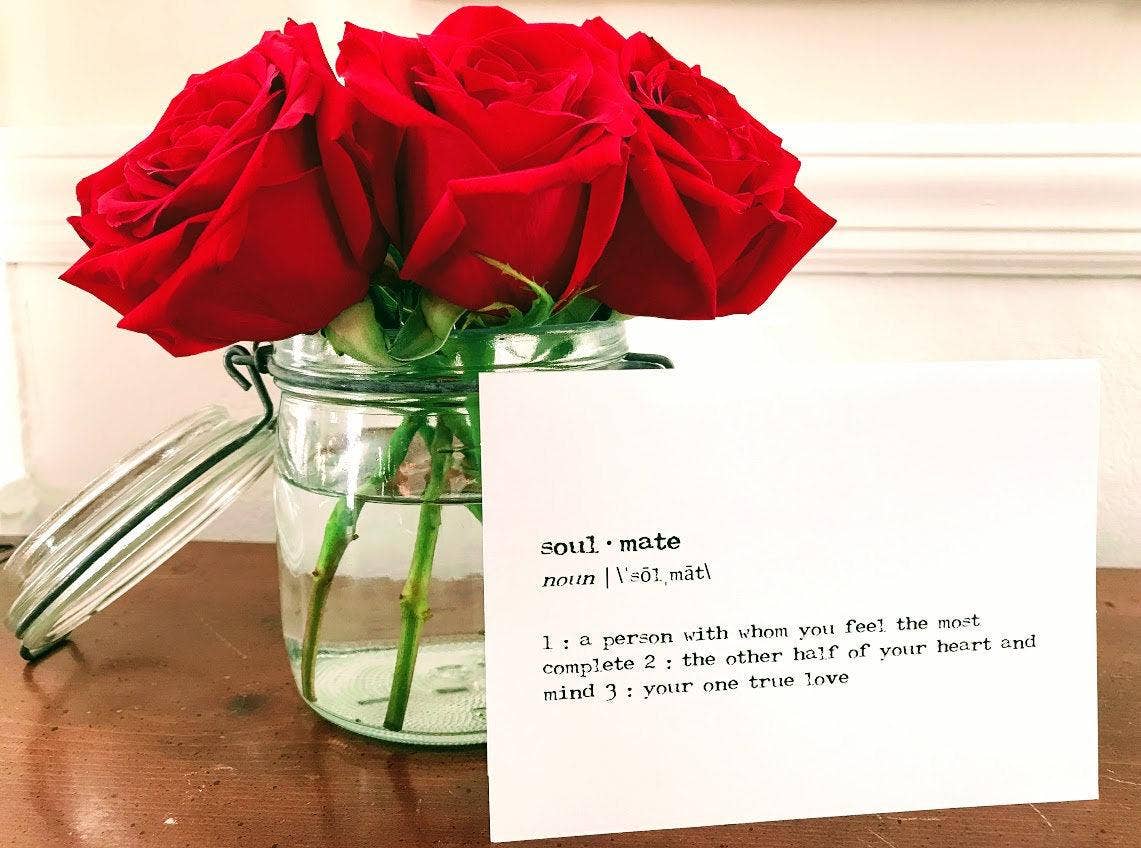 soul·mate
noun | \ˈsōl,māt\
1 : a person with whom you feel the most
complete 2 : the other half of your heart and
mind 3 : your one true love